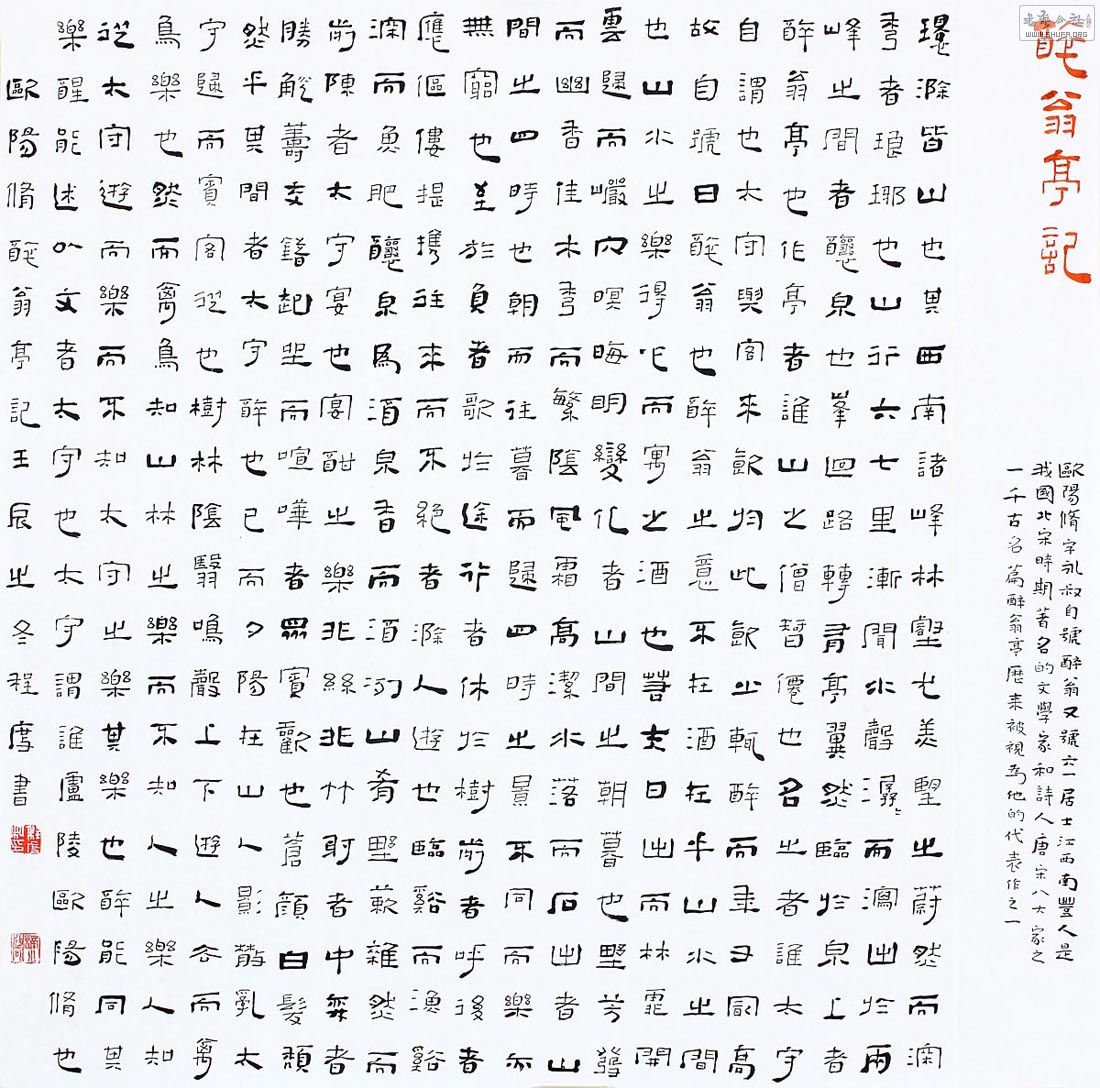 醉翁亭記
歐陽脩字永叔自號醉翁又號六一居士江西南豐人是
我國北宋時期著名的文學家和詩人唐宋八大家之
一千古名篇醉翁亭歷來被視為他的代表作之一
環滁皆山也其西南諸峰林壑尤美望之蔚然而深
秀者琅琊也山行六七里漸聞水聲潺〻而瀉出於兩
峰之間者釀泉也峯迴路轉有亭翼然臨於泉上者
醉翁亭也作亭者誰山之僧智僊也名之者誰太守
自謂也太守與客來飲於此飲少輒醉而年又最高
故自號曰醉翁也醉翁之意不在酒在乎山水之間
也山水之樂得心而寓之酒也若夫日出而林霏開
雲歸而巖穴暝晦明變化者山間之朝暮也野芳發
而幽香佳木秀而繁陰風霜高潔水落而石出者山
間之四時也朝而往暮而歸四時之景不同而樂亦
無窮也至於負者歌於途行者休於樹前者呼後者
應傴僂提攜往來而不絕者滁人遊也臨谿而漁谿
深而魚肥釀泉為酒泉香而酒洌山肴野蔌雜然而
前陳者太守宴也宴酣之樂非絲非竹射者中弈者
勝觥籌交錯起坐而喧嘩者眾賓歡也蒼顏白髮頹
然乎其間者太守醉也已而夕陽在山人影散亂太
守歸而賓客從也樹林陰翳鳴聲上下遊人去而禽
鳥樂也然而禽鳥知山林之樂而不知人之樂人知
從太守遊而樂而不知太守之樂其樂也醉能同其
樂醒能述以文者太守也太守謂誰廬陵歐陽脩也
歐陽脩醉翁亭記壬辰之冬程度書